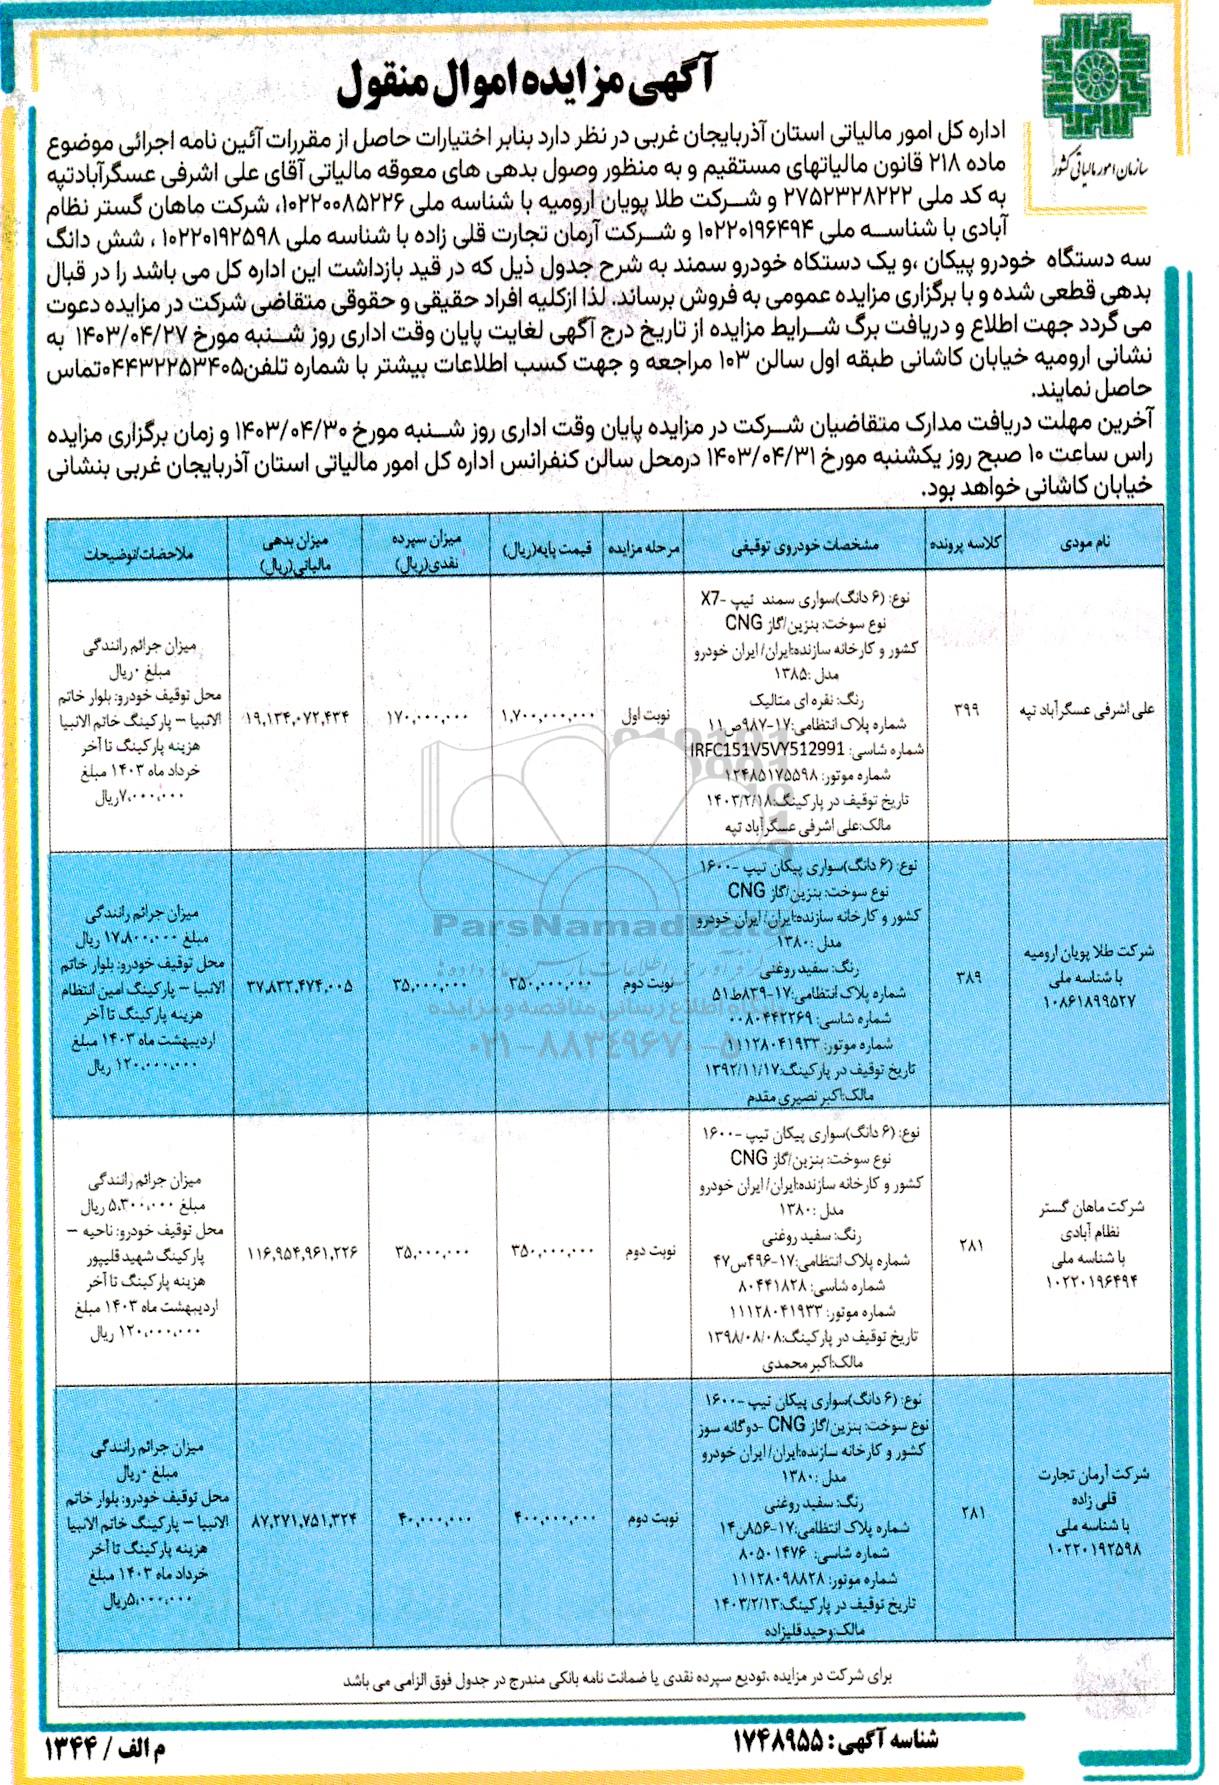 آگهی مزایده اموال منقول
سازمان امور مالیاتی کشور
اداره کل امور مالیاتی استان آذربایجان غربی در نظر دارد بنابر اختیارات حاصل از مقررات آئین نامه اجرائی موضوع
ماده ۲۱۸ قانون مالیاتهای مستقیم و به منظور وصول بدهی های معوقه مالیاتی آقای علی اشرفی عسگرآبادتپه
به کد ملی ۲۷۵۲۳۲۸۲۲۲ و شرکت طلا پویان ارومیه با شناسه ملی ۱۰۲۲۰۰۸۵۲۲۶، شرکت ماهان گستر نظام
آبادی با شناسه ملی ۱۰۲۲۰۱۹۶۴۹۴ و شرکت آرمان تجارت قلی زاده با شناسه ملی ۱۰۲۲۰۱۹۲۵۹۸ ، شش دانگ
سه دستگاه خودرو پیکان ،و یک دستکاه خودرو سمند به شرح جدول ذیل که در قید بازداشت این اداره کل می باشد را در قبال
بدهی قطعی شده و با برگزاری مزایده عمومی به فروش برساند. لذا ازکلیه افراد حقیقی و حقوقی متقاضی شرکت در مزایده دعوت
می گردد جهت اطلاع و دریافت برگ شرایط مزایده از تاریخ درج آگهی لغایت پایان وقت اداری روز شنبه مورخ ۱۴۰۳/۰۴/۲۷ به
نشانی ارومیه خیابان کاشانی طبقه اول سالن ۱۰۳ مراجعه و جهت کسب اطلاعات بیشتر با شماره تلفن۰۴۴۳۲۲۵۳۴۰۵تماس
حاصل نمایند.
آخرین مهلت دریافت مدارک متقاضیان شرکت در مزایده پایان وقت اداری روز شنبه مورخ ۱۴۰۳/۰۴/۳۰ و زمان برگزاری مزایده
راس ساعت ۱۰ صبح روز یکشنبه مورخ ۱۴۰۳/۰۴/۳۱ درمحل سالن کنفرانس اداره کل امور مالیاتی استان آذربایجان غربی بنشانی
خیابان کاشانی خواهد بود.
نام مودی | کلاسه پرونده | مشخصات خودروی توقیفی | مرحله مزایده | قیمت پایه(ریال) | میزان سپرده نقدی(ریال) | میزان بدهی مالیاتی(ریال) | ملاحضات/توضیحات
علی اشرفی عسگرآباد تپه
۳۹۹
نوع: (۶ دانگ)سواری سمند تیپ -X7
نوع سوخت: بنزین/گاز CNG
کشور و کارخانه سازنده:ایران/ ایران خودرو
مدل :۱۳۸۵
رنگ: نقره ای متالیک
شماره پلاک انتظامی:۱۷-۹۸۷ص۱۱
شماره شاسی: IRFC151V5VY512991
شماره موتور: ۱۲۴۸۵۱۷۵۵۹۸
تاریخ توقیف در پارکینگ:۱۴۰۳/۲/۱۸
مالک:علی اشرفی عسگرآباد تپه
نوبت اول
۱,۷۰۰,۰۰۰,۰۰۰
۱۷۰,۰۰۰,۰۰۰
۱۹,۱۳۴,۰۷۲,۴۳۴
میزان جرائم رانندگی
مبلغ ۰ریال
محل توقیف خودرو: بلوار خاتم
الانبیا – پارکینگ خاتم الانبیا
هزینه پارکینگ تا آخر
خرداد ماه ۱۴۰۳ مبلغ
۷،۰۰۰،۰۰۰ریال
شرکت طلا پویان ارومیه
با شناسه ملی
۱۰۸۶۱۸۹۹۵۲۷
۳۸۹
نوع: (۶ دانگ)سواری پیکان تیپ -۱۶۰۰
نوع سوخت: بنزین/گاز CNG
کشور و کارخانه سازنده:ایران/ ایران خودرو
مدل :۱۳۸۰
رنگ: سفید روغنی
شماره پلاک انتظامی:۱۷-۸۳۹ط۵۱
شماره شاسی: ۰۰۸۰۴۴۲۲۶۹
شماره موتور: ۱۱۱۲۸۰۴۱۹۳۳
تاریخ توقیف در پارکینگ:۱۳۹۲/۱۱/۱۷
مالک:اکبر نصیری مقدم
نوبت دوم
۳۵۰,۰۰۰,۰۰۰
۳۵,۰۰۰,۰۰۰
۳۷,۸۳۲,۴۷۴,۰۰۵
میزان جرائم رانندگی
مبلغ ۱۷،۸۰۰،۰۰۰ ریال
محل توقیف خودرو: بلوار خاتم
الانبیا – پارکینگ امین انتظام
هزینه پارکینگ تا آخر
اردیبهشت ماه ۱۴۰۳ مبلغ
۱۲۰،۰۰۰،۰۰۰ ریال
شرکت ماهان گستر
نظام آبادی
با شناسه ملی
۱۰۲۲۰۱۹۶۴۹۴
۲۸۱
نوع: (۶ دانگ)سواری پیکان تیپ -۱۶۰۰
نوع سوخت: بنزین/گاز CNG
کشور و کارخانه سازنده:ایران/ ایران خودرو
مدل :۱۳۸۰
رنگ: سفید روغنی
شماره پلاک انتظامی:۱۷-۴۹۶س۴۷
شماره شاسی: ۸۰۴۴۱۸۲۸
شماره موتور: ۱۱۱۲۸۰۴۱۹۳۳
تاریخ توقیف در پارکینگ:۱۳۹۸/۰۸/۰۸
مالک:اکبر محمدی
نوبت دوم
۳۵۰,۰۰۰,۰۰۰
۳۵,۰۰۰,۰۰۰
۱۱۶,۹۵۴,۹۶۱,۲۲۶
میزان جرائم رانندگی
مبلغ ۵،۳۰۰،۰۰۰ ریال
محل توقیف خودرو: ناحیه –
پارکینگ شهید قلیپور
هزینه پارکینگ تا آخر
اردیبهشت ماه ۱۴۰۳ مبلغ
۱۲۰،۰۰۰،۰۰۰ ریال
شرکت آرمان تجارت
قلی زاده
با شناسه ملی
۱۰۲۲۰۱۹۲۵۹۸
۲۸۱
نوع: (۶ دانگ)سواری پیکان تیپ -۱۶۰۰
نوع سوخت: بنزین/گاز CNG -دوگانه سوز
کشور و کارخانه سازنده:ایران/ ایران خودرو
مدل :۱۳۸۰
رنگ: سفید روغنی
شماره پلاک انتظامی:۱۷-۸۵۶ن۱۴
شماره شاسی: ۸۰۵۰۱۴۷۶
شماره موتور: ۱۱۱۲۸۰۹۸۸۲۸
تاریخ توقیف در پارکینگ:۱۴۰۳/۲/۱۳
مالک:وحید قلیزاده
نوبت دوم
۴۰۰,۰۰۰,۰۰۰
۴۰,۰۰۰,۰۰۰
۸۷,۲۷۱,۷۵۱,۳۲۴
میزان جرائم رانندگی
مبلغ ۰ریال
محل توقیف خودرو: بلوار خاتم
الانبیا – پارکینگ خاتم الانبیا
هزینه پارکینگ تا آخر
خرداد ماه ۱۴۰۳ مبلغ
۵،۰۰۰،۰۰۰ریال
برای شرکت در مزایده ،تودیع سپرده نقدی یا ضمانت نامه بانکی مندرج در جدول فوق الزامی می باشد
شناسه آگهی: ۱۷۴۸۹۵۵
م الف / ۱۳۴۴
ParsNamadData
۰۲۱-۸۸۳۴۹۶۷۰-۵